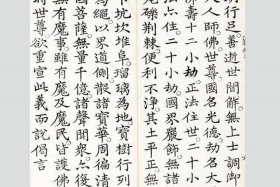 明行足善逝世間解無上士調御
天人師佛世尊國名光德劫名大
佛壽十二小劫正法住世二十小
法亦住二十小劫國界嚴飾無諸
瓦礫荊棘便利不淨其土平正無
下坑坎堆阜瑠璃為地寶樹行列
為繩以界道側散諸寶華周徧清
國菩薩無量千億諸聲聞眾亦復
無有魔事雖有魔及魔民皆護佛
時世尊欲重宣此義而說偈言